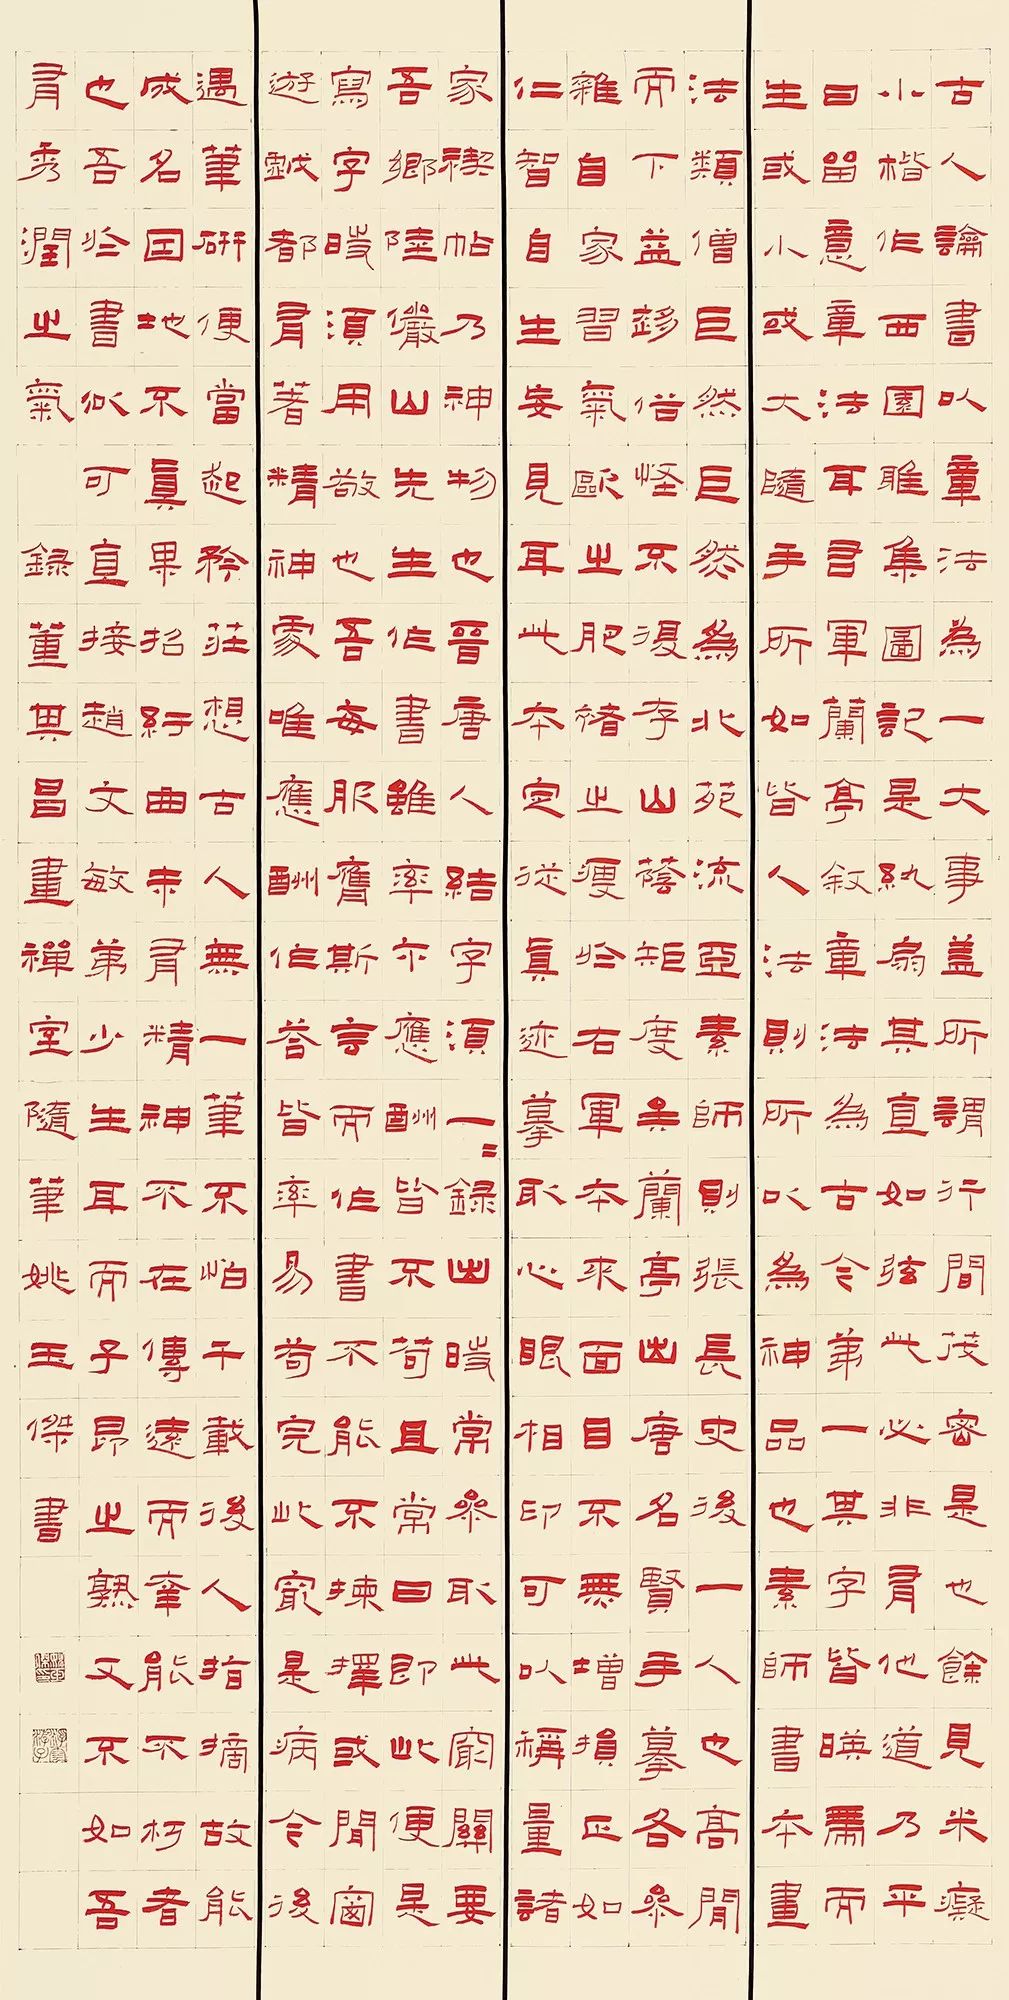 古人論書以章法為一大事蓋所謂行間茂密是也餘見米癡
小楷作西園雅集圖記是紈扇其直如弦此必非有他道乃平
日留意章法耳君軍蘭亭叙章法為古今第一其字皆暎帶而
生或小或大隨手所如皆入法則所以為神品也素師書本畫
法類僧巨然巨然為北苑流亞素師則張長史後一人也高閒
而下益趍俗怪不復存山蔭矩度矣蘭亭出唐名賢手摹各參
雜自家習氣歐之肥褚之瘦於右軍本來面目不無增損正如
仁智自生妄見耳此本定從真迹摹取心眼相印可以稱量諸
家禊帖乃神物也晉唐人結字須一〻錄出時常參取此窮關要
吾鄉陸儼山先生作書雖率尒應酬皆不苟且常曰即此便是
寫字時須用敬也吾每服膺斯言而作書不能不揀擇或閒窗
遊戲都有著精神處唯應酬作答皆率易苟完此最是病今後
遇筆研便當起矜莊想古人無一筆不怕千載後人指摘故能
成名因地不真果招紆曲未有精神不在傳遠而幸能不朽者
也吾於書似可直接趙文敏第少生耳而子昂之熟又不如吾
有秀潤之氣 錄董其昌畫禪室隨筆姚玉傑書